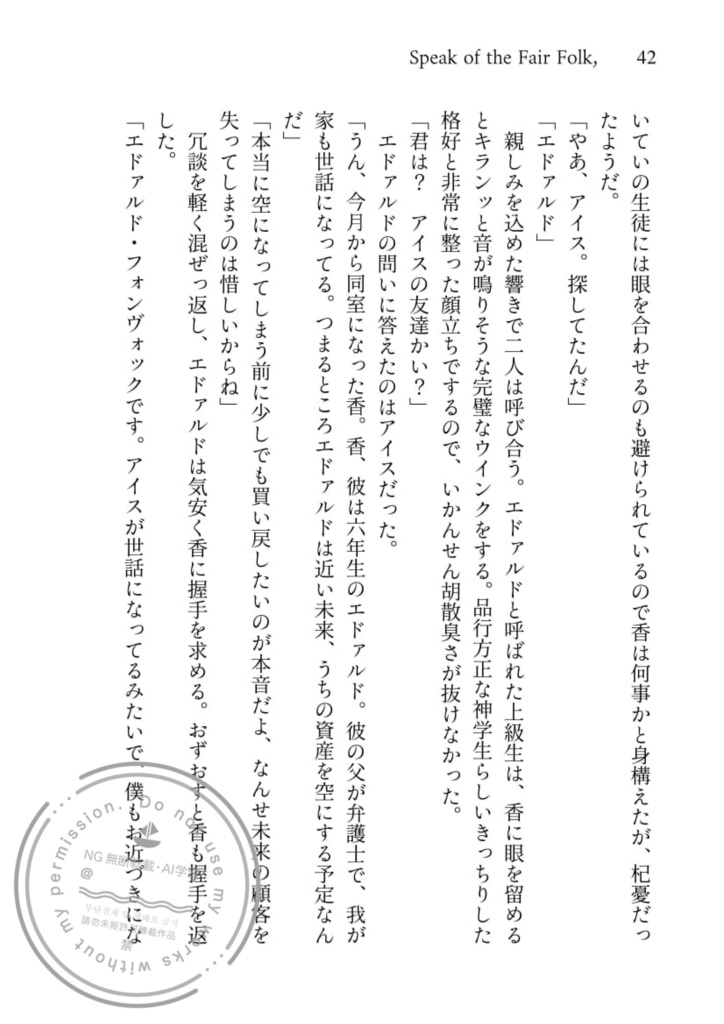 Speak of the Fair Folk, 42
いていの生徒には眼を合わせるのも避けられているので香は何事かと身構えたが、杞憂だっ
たようだ。
「やあ、アイス。探してたんだ」
「エドァルド」
親しみを込めた響きで二人は呼び合う。エドァルドと呼ばれた上級生は、香に眼を留める
とキランッと音が鳴りそうな完璧なウインクをする。品行方正な神学生らしいきっちりした
格好と非常に整った顔立ちでするので、いかんせん胡散臭さが抜けなかった。
「君は？　アイスの友達かい？」
エドァルドの問いに答えたのはアイスだった。
「うん、今月から同室になった香。香、彼は六年生のエドァルド。彼の父が弁護士で、我が
家も世話になってる。つまるところエドァルドは近い未来、うちの資産を空にする予定なん
だ」
「本当に空になってしまう前に少しでも買い戻したいのが本音だよ、なんせ未来の顧客を
失ってしまうのは惜しいからね」
冗談を軽く混ぜっ返し、エドァルドは気安く香に握手を求める。おずおずと香も握手を返
した。
「エドァルド・フォンヴォックです。アイスが世話になってるみたいで、僕もお近づきにな
Do not use my works without my permission.
NG 無断転載・AI学
@
무단전재 및
請勿未經許可轉載作品
禁